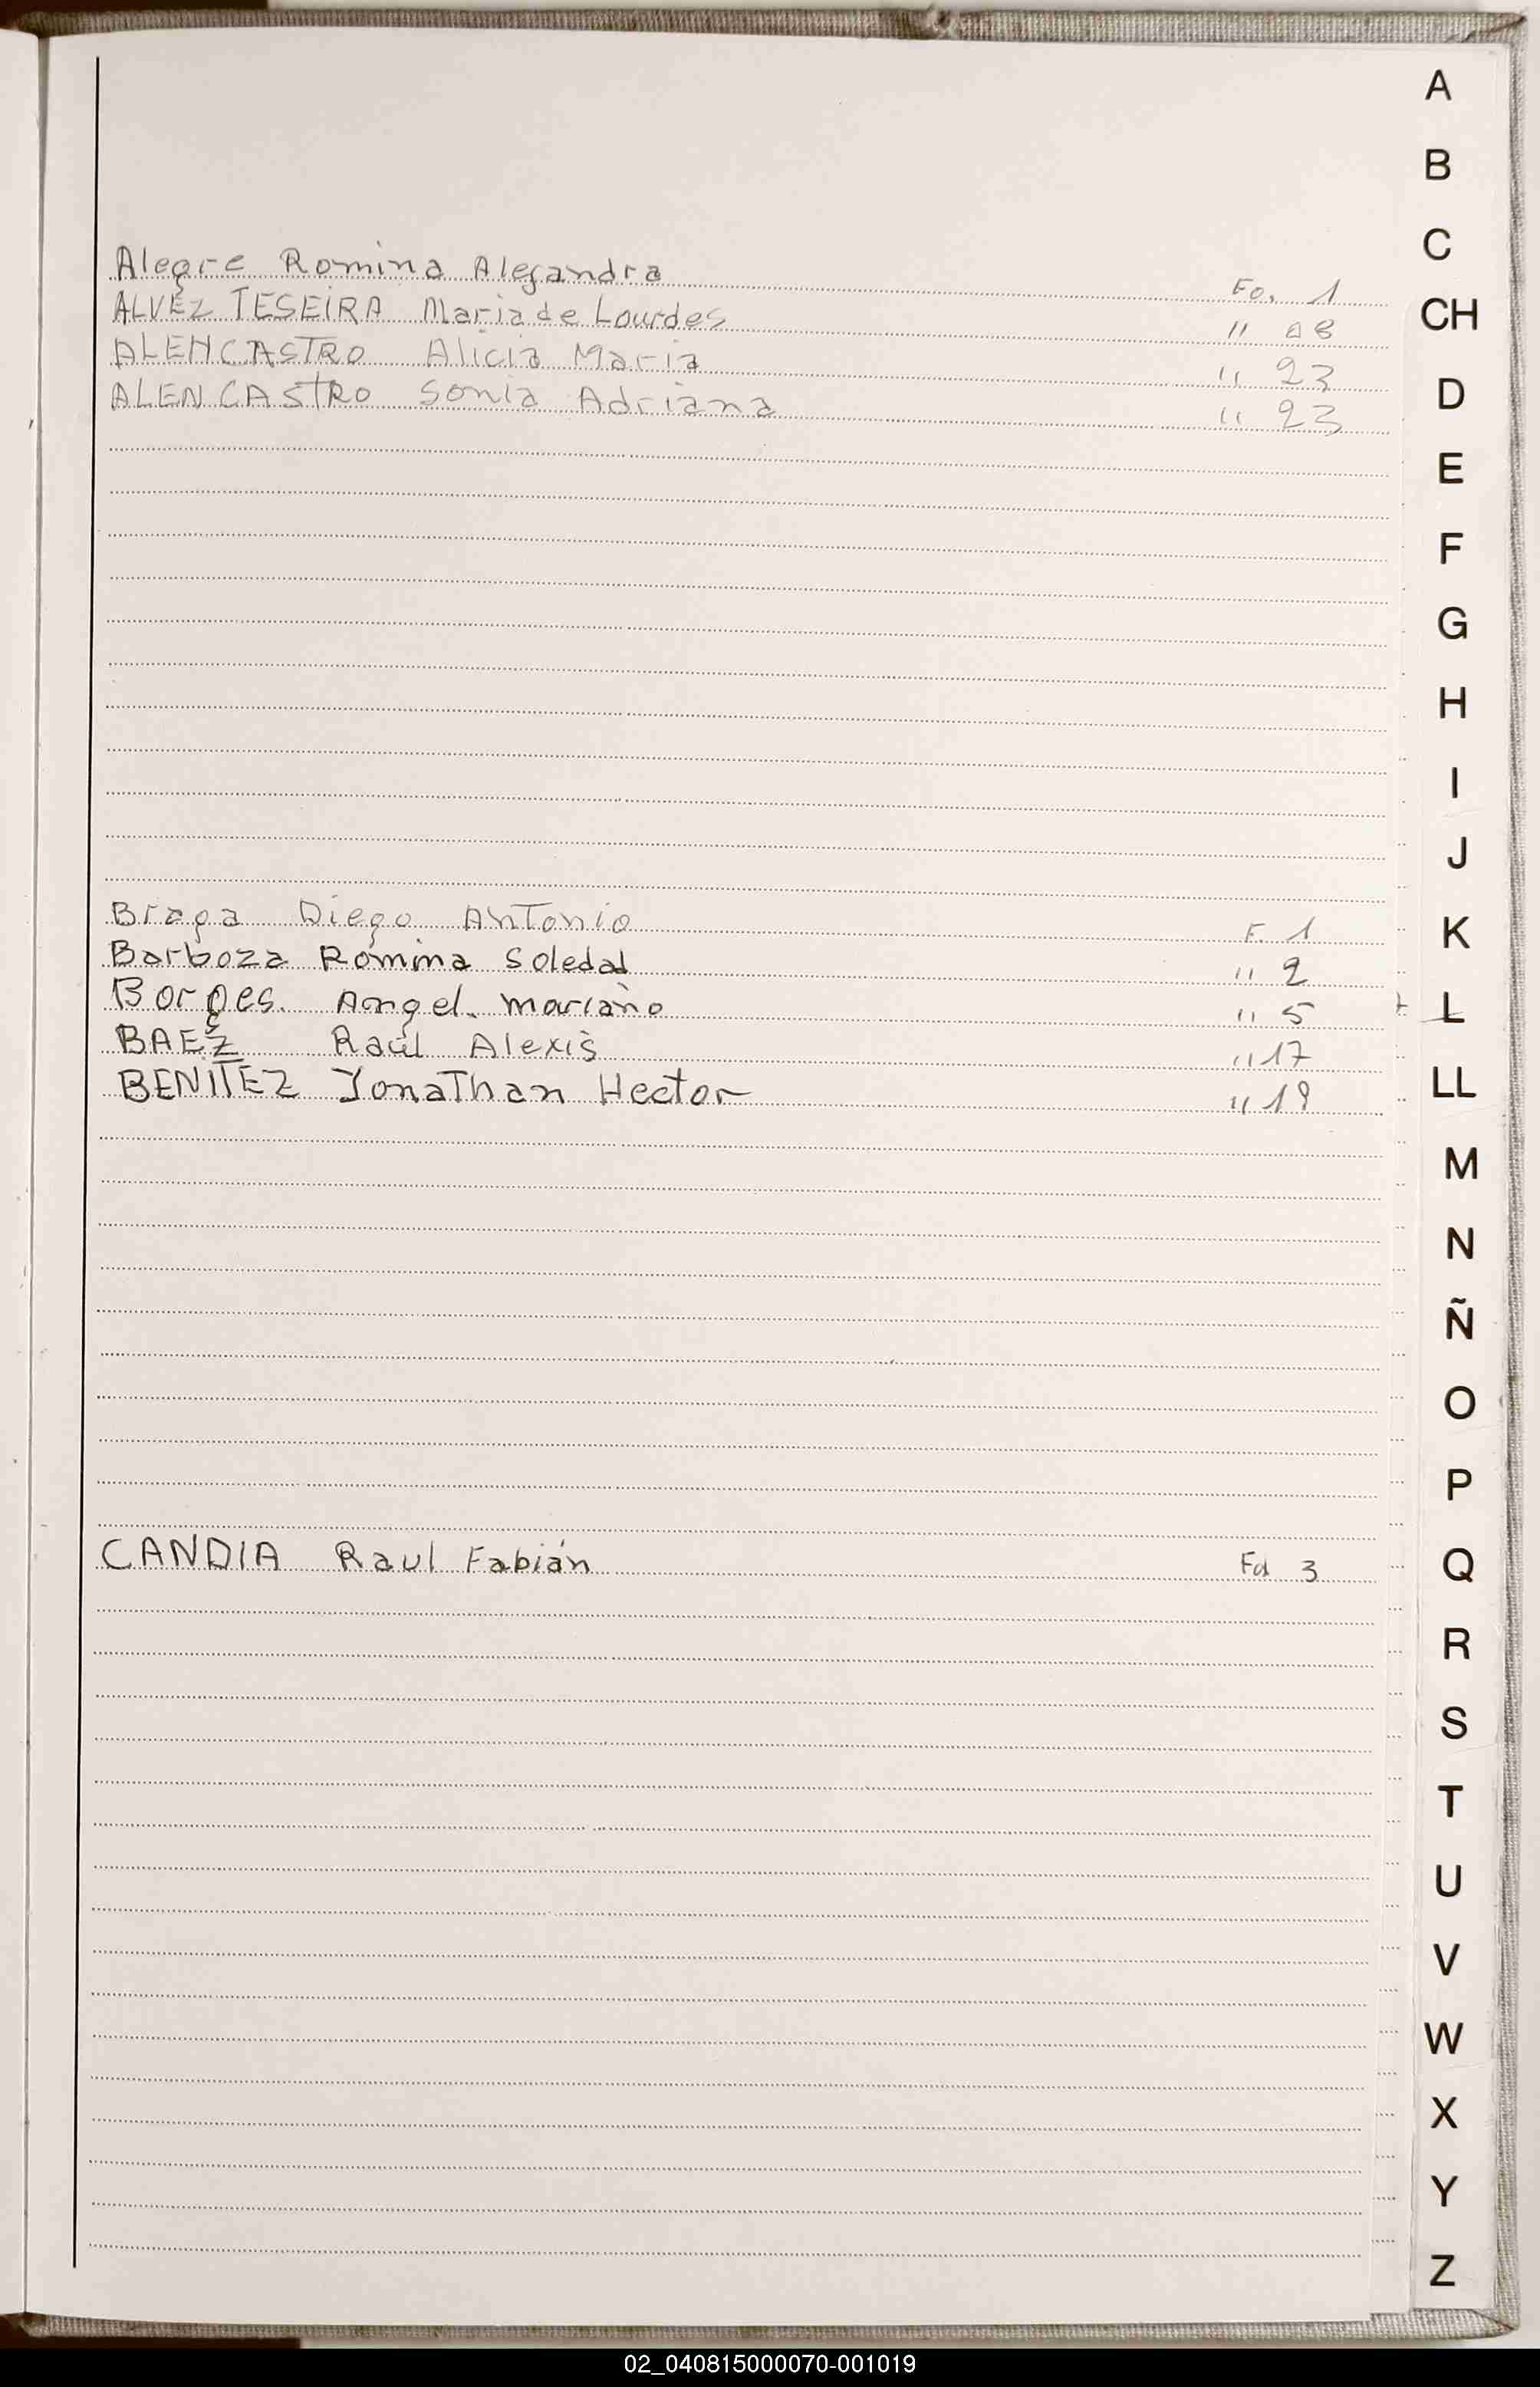 A
B
C
CH
D
E
F
G
H
I
J
K
L
LL
M
N
Ñ
O
P
Q
R
S
T
U
V
W
X
Y
Z
Alegre Romina Alejandra Fo. 1
ALVEZ TESEIRA Maria de Lourdes "
ALENCASTRO Alicia Maria " 23
ALENCASTRO Sonia Adriana " 23
Braga Diego Antonio F. 1
Barboza Romina Soledad " 2
Borges. Angel. Mariano " 5
BAEZ Raúl Alexis " 17
BENITEZ Jonathan Hector " 19
CANDIA Raul Fabián 3
02_040815000070-001019